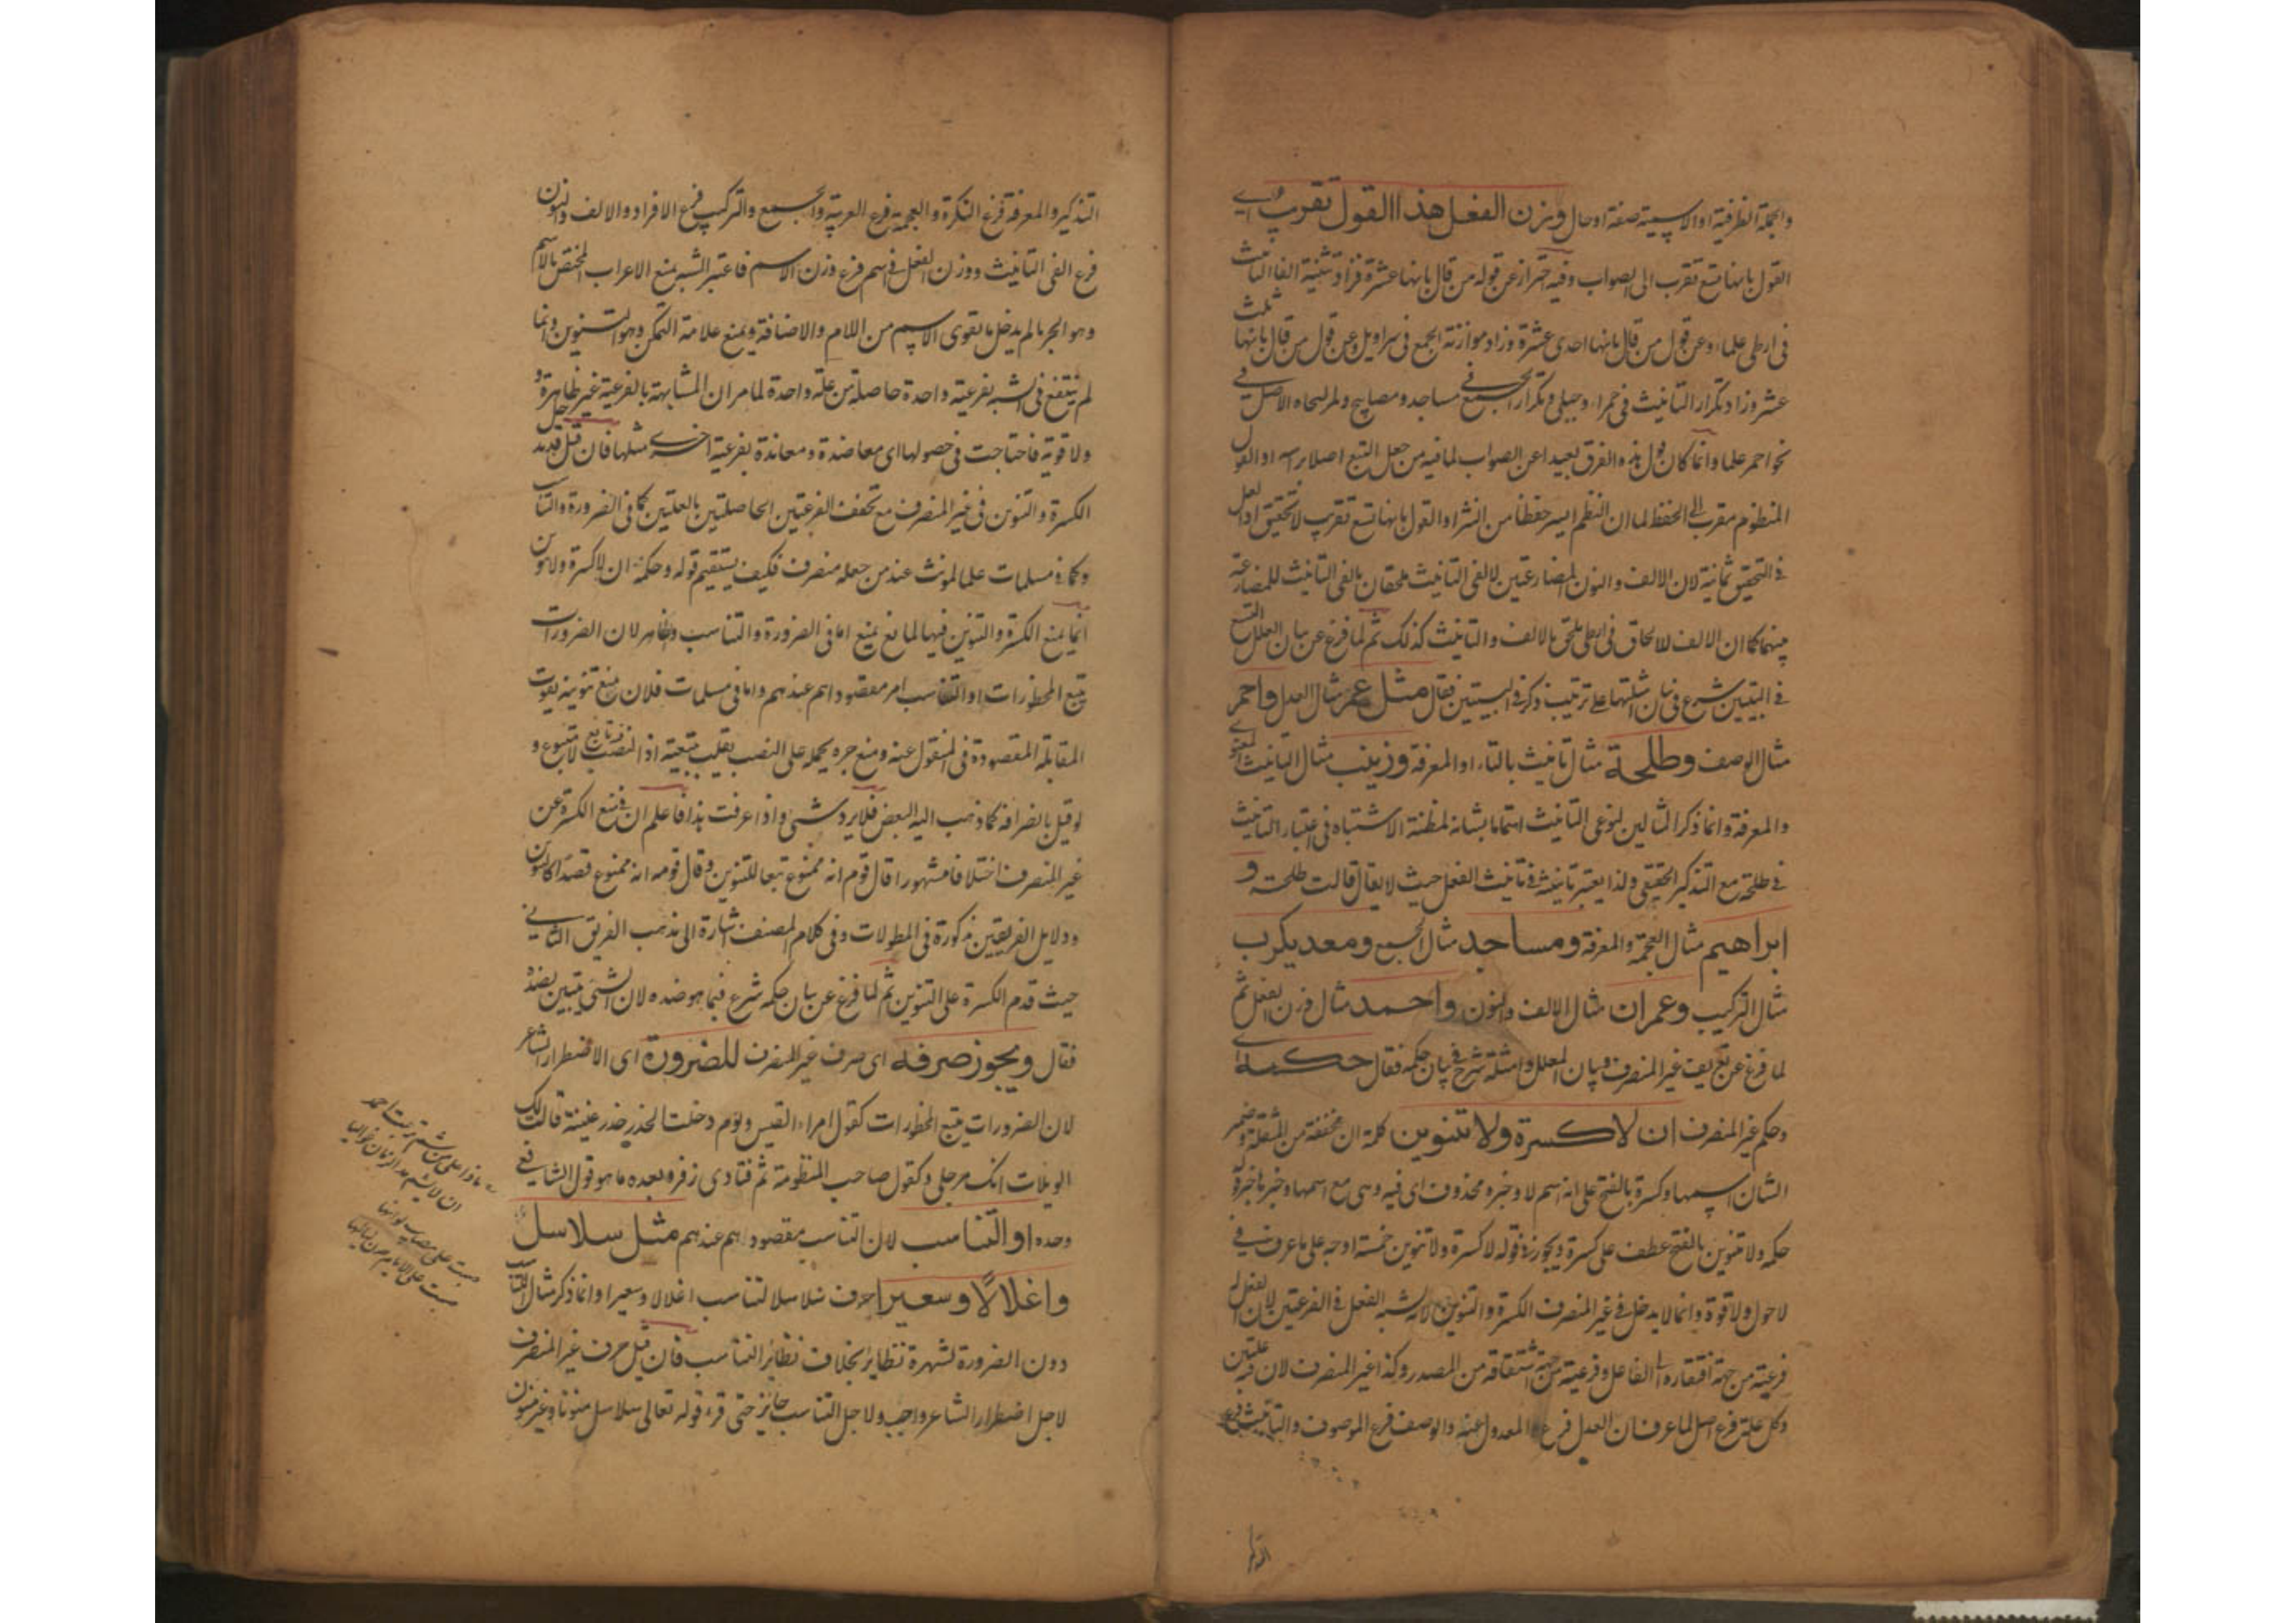 والجملة الظرفية او الاسمية صفة او حال ووزن الفعل هذا القول تقريب اي
القول بانها تسع تقرب الى الصواب وفيه احتراز عن قوله من قال بانها عشرة فزاد شبيه الف التانيث
فى ارطى علما وعن قول من قال بانها احدى عشرة وزاد موازنة الجمع فى سراويل وعن قول من قال بانها ثلث
عشر وزاد تكرار التانيث فى حمراء وحبلى وتكرار الجمع فى مساجد ومصابيح ولمراعاة الاصل فى
نحو احمر علما وانما كان قول هذه الفرق بعيدا عن الصواب لما فيه من جعل التبع اصلا براسه او القول
المنظوم مقرب الى الحفظ لما ان النظم ايسر حفظا من النثر او القول بانها تسع تقريب لا تحقيق اذ العلل
فى التحقيق ثمانية لان الالف والنون المضارعتين لالفى التانيث ملحقان بالفى التانيث للمضارعة
بينهما كما ان الالف للالحاق فى ارطى ملحق بالالف والتانيث كذلك ثم لما فرغ عن بيان العلل التسع
فى البيتين شرع فى بيان امثلتها على ترتيب ذكر فى البيتين فقال مثل عمر مثال العدل واحمر
مثال الوصف وطلحة مثال تانيث بالتاء او المعرفة وزينب مثال التانيث المعنوى
والمعرفة وانما ذكر المثالين لنوعى التانيث اهتماما بشانه لمظنة الاشتباه فى اعتبار التانيث
فى طلحة مع التذكير الحقيقى ولذا يعتبر تانيثه فى تانيث الفعل حيث لا يقال قالت طلحة و
ابراهيم مثال العجمة والمعرفة ومساجد مثال الجمع ومعديكرب
مثال التركيب وعمران مثال الالف والنون واحمد مثال وزن الفعل ثم
لما فرغ عن تعريف غير المنصرف وبيان العلل وامثلته شرع فى بيان حكمه فقال حكمه اي
وحكم غير المنصرف ان لا كسرة ولا تنوين كلمة ان مخففة من المثقلة وضمير
الشان اسمها وكسرة بالفتح على انه اسم لا وخبره محذوف اى فيه وهى مع اسمها وخبرها خبر
حكمه ولا تنوين بالفتح عطف على كسرة ويجوز فى قوله لا كسرة ولا تنوين خمسة اوجه على ما عرف فى
لا حول ولا قوة وانما لا يدخل فى غير المنصرف الكسرة والتنوين لانه شبه الفعل فى الفرعتين لان الفعل له
فرعية من جهة افتقاره الى الفاعل وفرعية من جهة اشتقاقه من المصدر وكذا غير المنصرف لان فيه علتين
وكل علة فرع اصل لما عرف ان العدل فرع المعدول عنه والوصف فرع الموصوف والتانيث فرع
التذكير
التذكير والمعرفة فرع النكرة والعجمة فرع العربية والجمع والتركيب فرع الافراد والالف والنون
فرع الفى التانيث ووزن الفعل فى اسم فرع وزن الاسم فاعتبر الشبه بمنع الاعراب المختص بالاسم
وهو الجر ما لم يدخل ما يقوى الاسم من اللام والاضافة ويمنع علامة التمكن وهو التنوين وانما
لم ينتفع فى الشبه بفرعية واحدة حاصلة من علة واحدة لما مر ان المشابهة بالفرعية غير ظاهرة
ولا قوية فاحتاجت فى حصولها اى معاضدة ومعاندة بفرعية اخرى مثلها فان قيل قد يدخل
الكسرة والتنوين فى غير المنصرف مع تحقق الفرعيتين الحاصلتين بالعلتين كما فى الضرورة والتناسب
وكما فى مسلمات علما لمونث عند من جعله منصرف فكيف يستقيم قوله وحكمه ان لا كسرة ولا تنوين
انما يمنع الكسرة والتنوين فيها لمانع يمنع اما فى الضرورة والتناسب وظاهر لان الضرورات
تبيح المحظورات او التناسب امر مقصود اهم عندهم واما فى مسلمات فلان منع تنوينه يفوت
المقابلة المقصودة فى المنقول عنه ومنع جره يحمله على النصب بقلب تبعية اذ النصب فيه تابع لا متبوع و
لو قيل بالصرافه كما ذهب اليه البعض فلا يرد شئ واذا عرفت هذا فاعلم ان فى منع الكسرة عن
غير المنصرف اختلافا مشهورا قال قوم انه ممنوع تبعا للتنوين وقال قوم انه ممنوع قصدا كالتنوين
ودلايل الفريقين مذكورة فى المطولات وفى كلام المصنف اشارة الى مذهب الفريق الثانى
حيث قدم الكسرة على التنوين ثم لما فرغ عن بيان حكمه شرع فيما هو ضده لان الشئ يتبين بضده
فقال ويجوز صرفه اى صرف غير المنصرف للضرورة اى الاضطرار الشاعر
لان الضرورات تبيح المحظورات كقول امراء القيس ويوم دخلت الخدر خدر عنيزة فقالت لك
الويلات انك مرجلى وكقول صاحب المنظومة ثم فتاوى زفر وبعده ما هو قول الشافعى
وحده او التناسب لان التناسب مقصود اهم عندهم مثل سلاسل
واغلالا وسعيرا صرف سلاسلا لتناسب اغلالا وسعيرا وانما ذكر مثال التناسب
دون الضرورة لشهرة نظايرها بخلاف نظائر التناسب فان قيل صرف غير المنصرف
لاجل اضطرار الشاعر واجب ولاجل التناسب جائز حتى قرء قوله تعالى سلاسل منونا وغير منون
ماذا على من شم تربت احمد
ان لا يشم مد الزمان غواليا
صبت على مصايب لو انها
صبت على الايام صرن لياليا